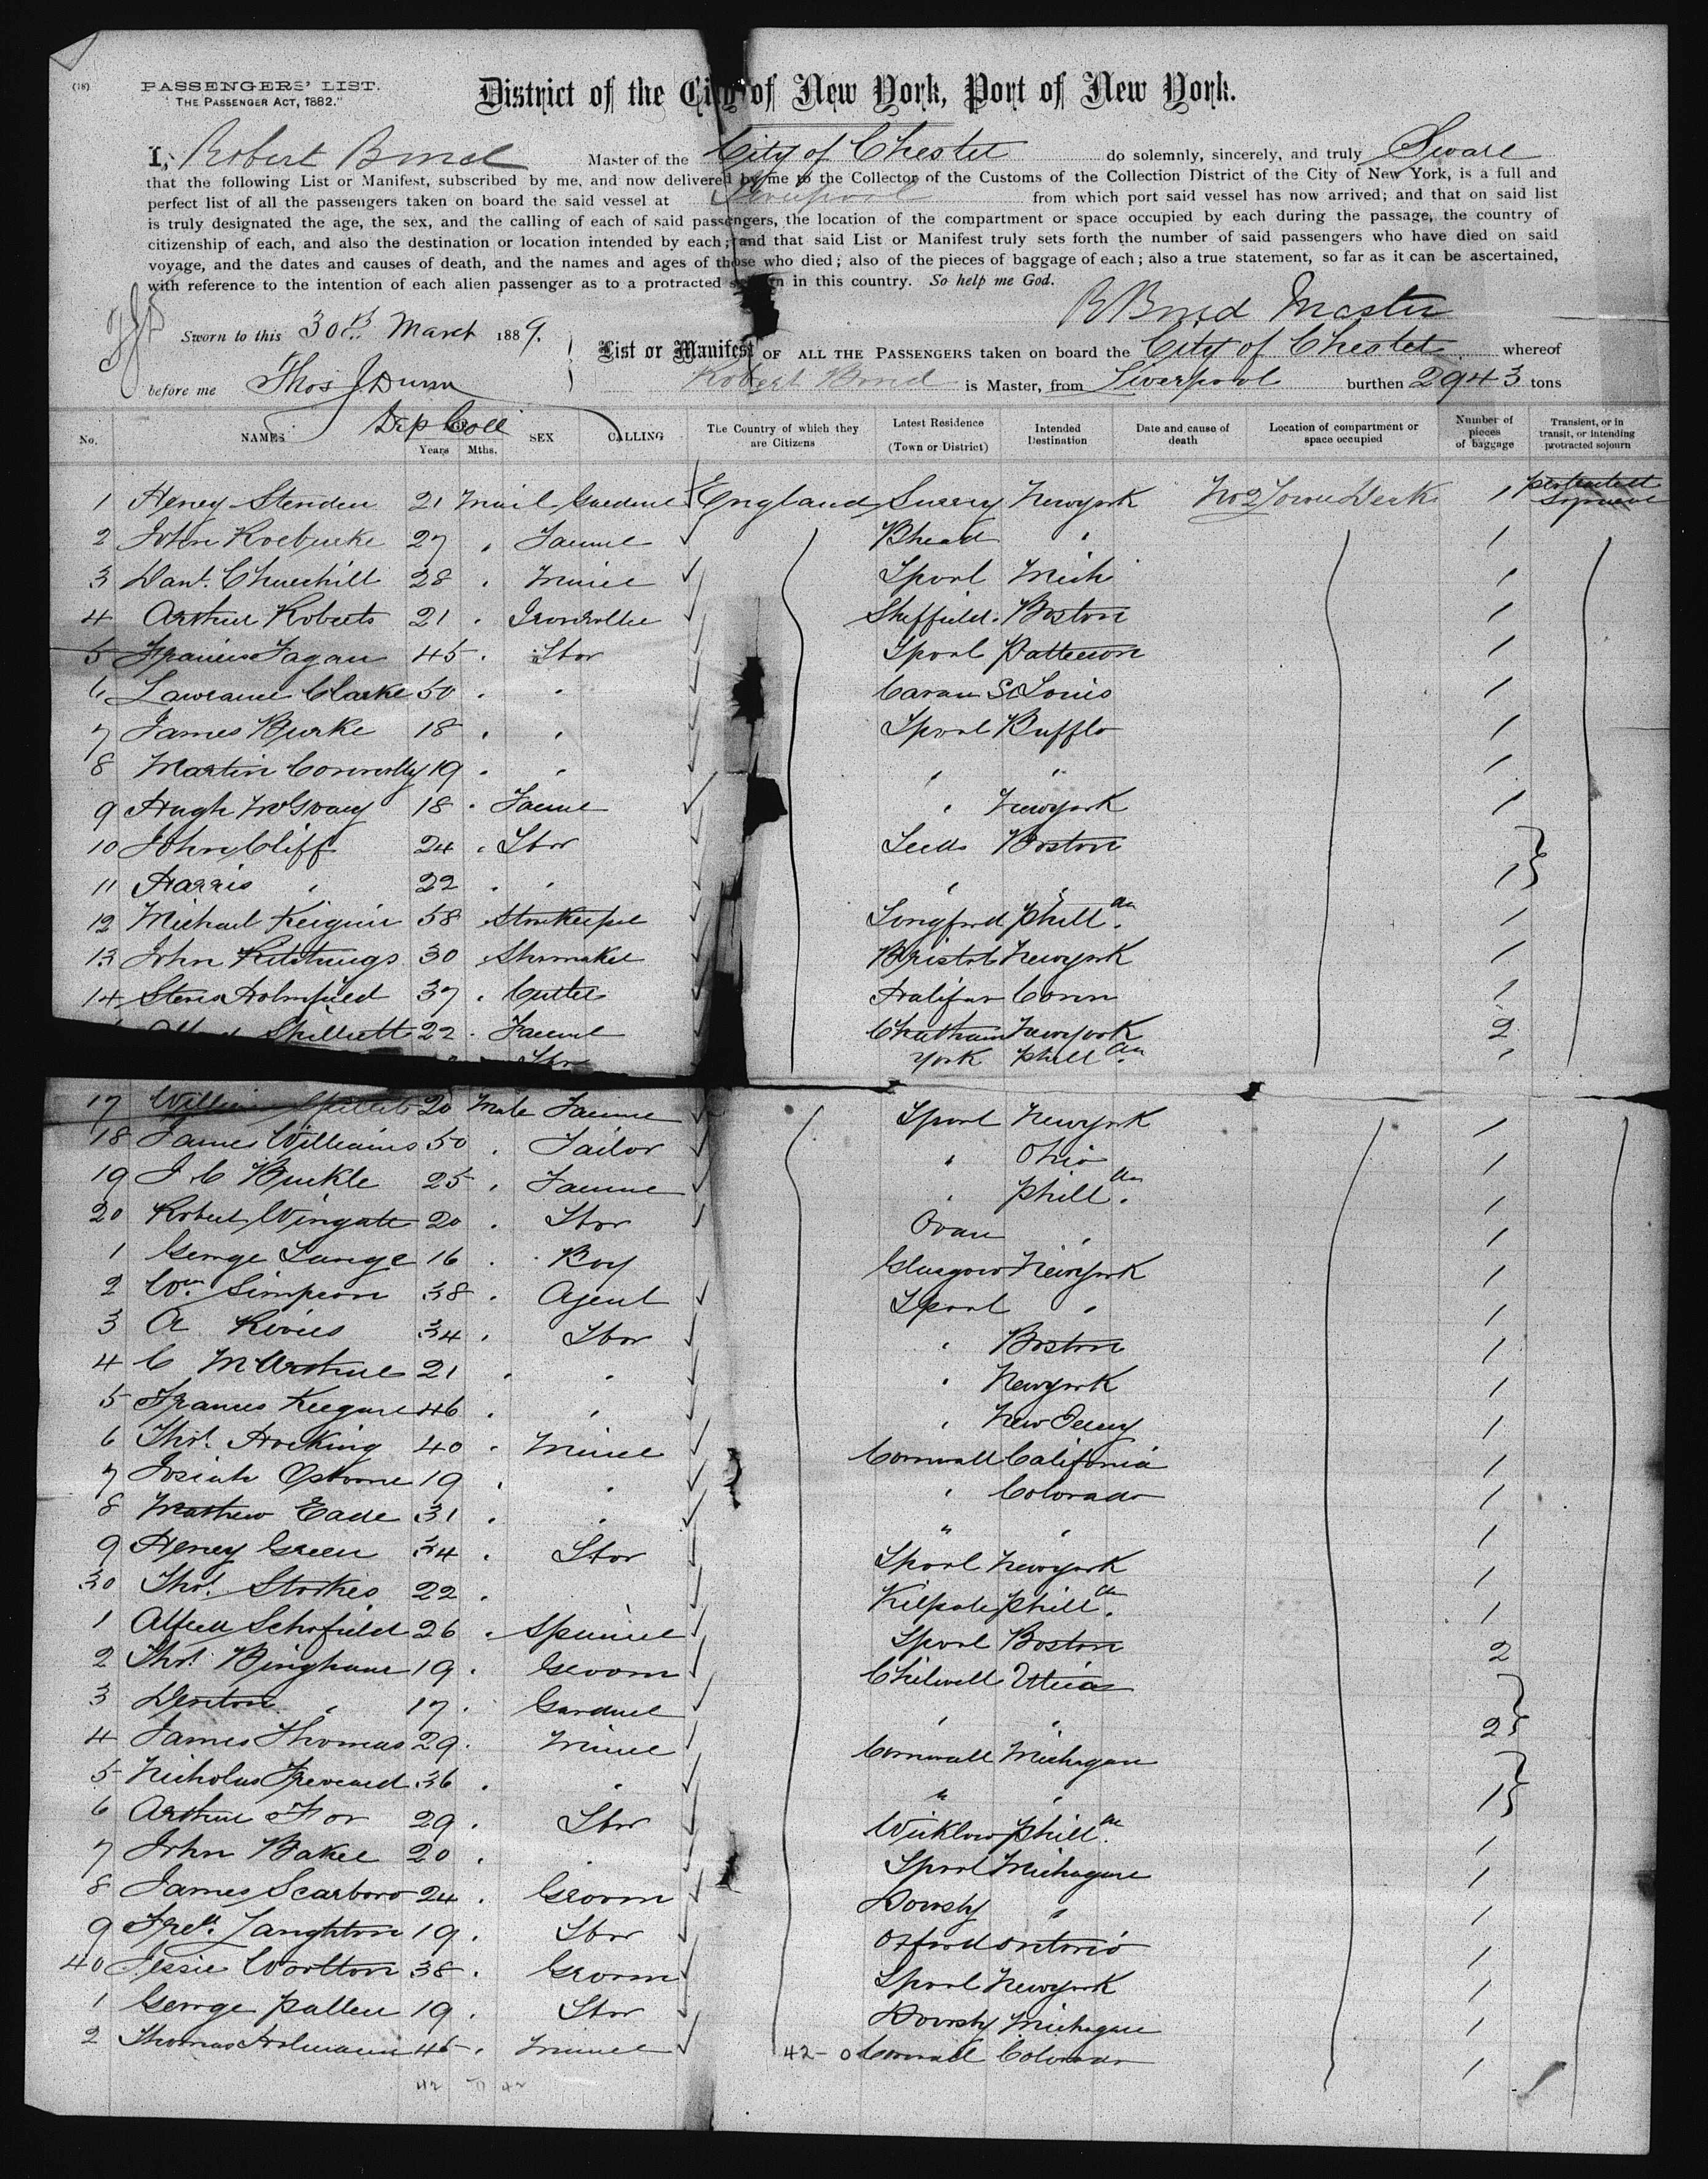 (18)
PASSENGERS' LIST.
"THE PASSENGER ACT, 1882."
District of the City of New York, Port of New York.
I, Robert Bond Master of the City of Chester do solemnly, sincerely, and truly Sware
that the following List or Manifest, subscribed by me, and now delivered by me to the Collector of the Customs of the Collection District of the City of New York, is a full and
perfect list of all the passengers taken on board the said vessel at Liverpool from which port said vessel has now arrived; and that on said list
is truly designated the age, the sex, and the calling of each of said passengers, the location of the compartment or space occupied by each during the passage, the country of
citizenship of each, and also the destination or location intended by each; and that said List or Manifest truly sets forth the number of said passengers who have died on said
voyage, and the dates and causes of death, and the names and ages of those who died; also of the pieces of baggage of each; also a true statement, so far as it can be ascertained,
with reference to the intention of each alien passenger as to a protracted in this country. So help me God.
R Bond Master
Sworn to this 30th March 1889.
List or Manifest OF ALL THE PASSENGERS taken on board the City of Chester whereof
before me Thos J Dunn Robert Bond is Master, from Liverpool burthen 2943 tons
Dep Coll
No. NAMES Years Mths. SEX CALLING The Country of which they are Citizens Latest Residence (Town or District) Intended Destination Date and cause of death Location of compartment or space occupied Number of pieces of baggage Transient, or in transit, or intending protracted sojourn
1 Henry 21 Mail England Surrey Newyork No 2 1
2 John Roebucke 27 " Bhead " 1
3 Danl. Churchill 28 " Miner Lpool Mich 1
4 Arthur Roberts 21 " Sheffield. Boston 1
5 Francis Fagan 45 " Lbor Lpool Patterson 1
6 Lawrance Clarke 50 " " Cavan St Louis 1
7 James Burke 18 " " Lpool Bufflo 1
8 Martin Connolly 19 " " " " 1
9 Hugh 18 " Farmer " Newyork 1
10 John Cliff 24 " Lbor Leeds Boston
11 Harris " 22 " " " " 1}
12 Michael 58 Storekeeper Longford Phill.a 1
13 John Kitchings 30 Shomaker Bristol Newyork 1
14 Holmfield 37 " Cutter Halifax Conn 1
Skillett 22 " Farmer Chatham Newyork 2
Lbor York Phill.a "
17 William 20 Male Farmer Lpool Newyork 1
18 James Williams 50 " Tailor " Ohio 1
19 J C Buckle 25 " Farmer " Phill.a 1
20 Robert Wingate 20 " Lbor " 1
1 George Lange 16 " Boy Glasgow Newyork 1
2 Wm Simpson 38 " Agent Lpool " 1
3 A 34 " Lbor " Boston 1
4 C McArthur 21 " " " Newyork 1
5 Frances 46 " " " New Jersey 1
6 Thos. Hocking 40 " Miner Cornwall California 1
7 Josiah Osborne 19 " " " Colorado 1
8 Mathew Eade 31 " " " " 1
9 Henry Green 34 " Lbor Lpool Newyork 1
30 Thos. Stookes 22 " Phill.a 1
1 Alfred Schofield 26 " Spinner Lpool Boston 2
2 Thos. Bingham 19 " Groom Chilwell Utica
3 " 17 " Gardner " " 2}
4 James Thomas 29 " Miner Cornwall Michagan
5 Nicholas 36 " " " " 1}
6 Arthur Fox 29 " Lbor Wicklow Phill.a 1
7 John Baker 20 " " Lpool Michagan 1
8 James Scarboro 24 " Groom " 1
9 Fredk. Langhton 19 " Lbor Oxford Ontario 1
40 Jessie 38 " Groom Lpool Newyork 1
1 George Pallen 19 " Lbor Michagan 1
2 Thomas Holmann 45 " Miner 42-0 Cornwall Colorado 1
42 42